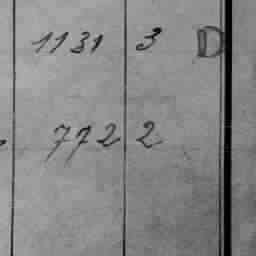 1131 3 D
772 2